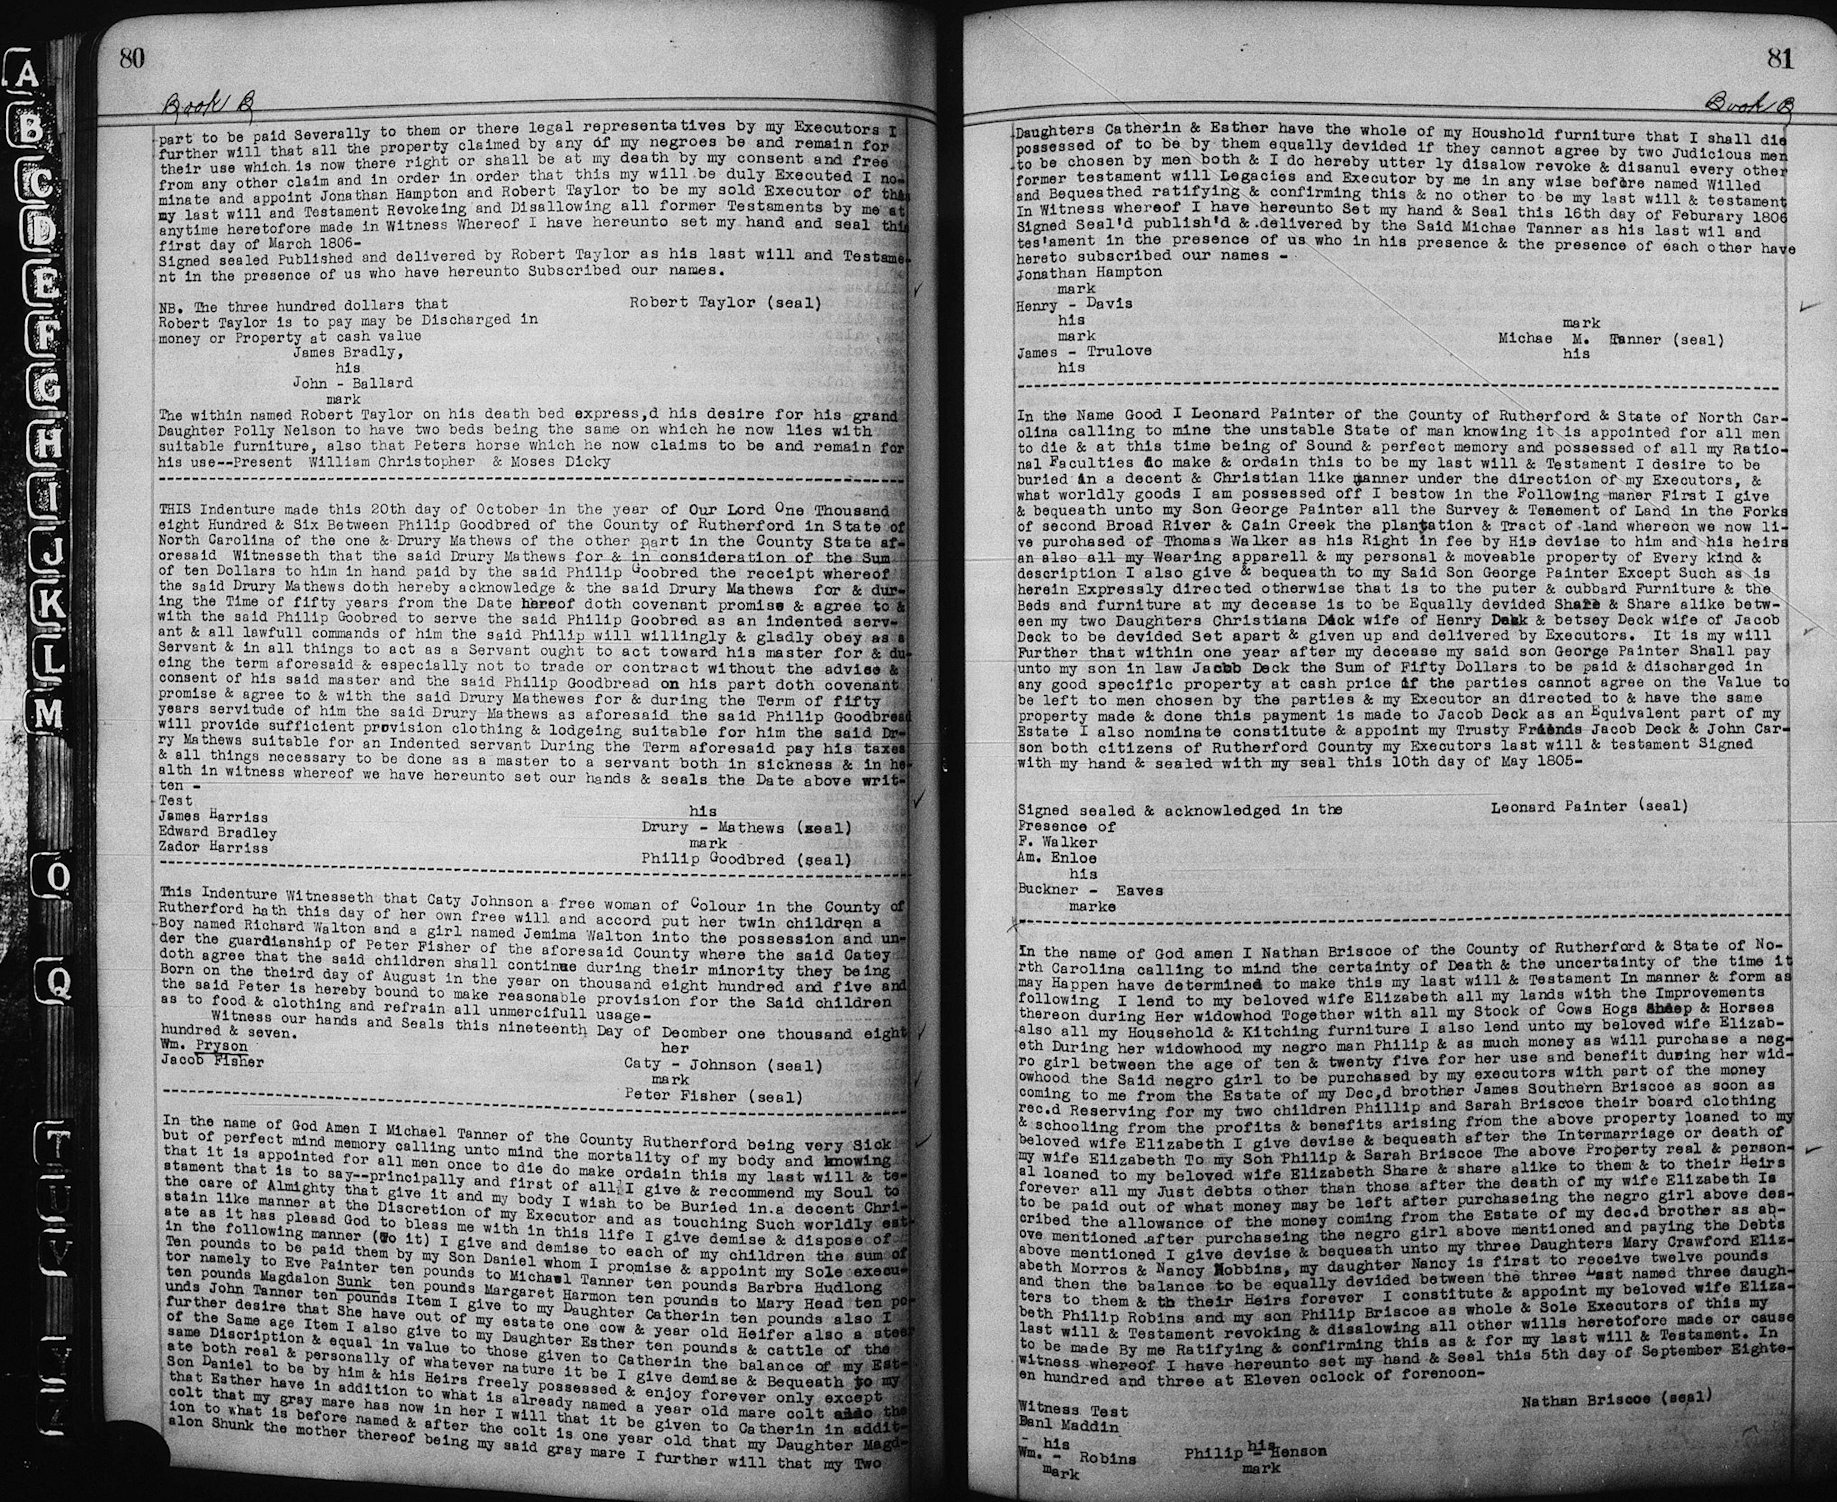 80
Book B
part to be paid Severally to them or there legal representatives by my Executors I
further will that all the property claimed by any of my negroes be and remain for
their use which is now there right or shall be at my death by my consent and free
from any other claim and in order in order that this my will be duly Executed I no-
minate and appoint Jonathan Hampton and Robert Taylor to be my sold Executor of this
my last will and Testament Revokeing and Disallowing all former Testaments by me at
anytime heretofore made in Witness Whereof I have hereunto set my hand and seal this
first day of March 1806-
Signed sealed Published and delivered by Robert Taylor as his last will and Testame-
nt in the presence of us who have hereunto Subscribed our names.
NB. The three hundred dollars that Robert Taylor (seal)
Robert Taylor is to pay may be Discharged in
money or Property at cash value
James Bradly,
his
John - Ballard
mark
The within named Robert Taylor on his death bed express,d his desire for his grand
Daughter Polly Nelson to have two beds being the same on which he now lies with
suitable furniture, also that Peters horse which he now claims to be and remain for
his use--Present William Christopher & Moses Dicky
THIS Indenture made this 20th day of October in the year of Our Lord One Thousand
eight Hundred & Six Between Philip Goodbred of the County of Rutherford in State of
North Carolina of the one & Drury Mathews of the other part in the County State af-
oresaid Witnesseth that the said Drury Mathews for & in consideration of the Sum
of ten Dollars to him in hand paid by the said Philip Goobred the receipt whereof
the said Drury Mathews doth hereby acknowledge & the said Drury Mathews for & dur-
ing the Time of fifty years from the Date hereof doth covenant promise & agree to &
with the said Philip Goobred to serve the said Philip Goobred as an indented serv-
ant & all lawfull commands of him the said Philip will willingly & gladly obey as a
Servant & in all things to act as a Servant ought to act toward his master for & du-
eing the term aforesaid & especially not to trade or contract without the advise &
consent of his said master and the said Philip Goodbread on his part doth covenant
promise & agree to & with the said Drury Mathewes for & during the Term of fifty
years servitude of him the said Drury Mathews as aforesaid the said Philip Goodbread
will provide sufficient provision clothing & lodgeing suitable for him the said Dr-
ry Mathews suitable for an Indented servant During the Term aforesaid pay his taxes
& all things necessary to be done as a master to a servant both in sickness & in he-
alth in witness whereof we have hereunto set our hands & seals the Date above writ-
ten -
Test
James Harriss his
Edward Bradley Drury - Mathews (seal)
Zador Harriss mark
Philip Goodbred (seal)
This Indenture Witnesseth that Caty Johnson a free woman of Colour in the County of
Rutherford hath this day of her own free will and accord put her twin children a
Boy named Richard Walton and a girl named Jemima Walton into the possession and un-
der the guardianship of Peter Fisher of the aforesaid County where the said Catey
doth agree that the said children shall continue during their minority they being
Born on the theird day of August in the year on thousand eight hundred and five and
the said Peter is hereby bound to make reasonable provision for the Said children
as to food & clothing and refrain all unmercifull usage-
Witness our hands and Seals this nineteenth Day of Decmber one thousand eight
hundred & seven.
Wm. Pryson her
Jacob Fisher Caty - Johnson (seal)
mark
Peter Fisher (seal)
In the name of God Amen I Michael Tanner of the County Rutherford being very Sick
but of perfect mind memory calling unto mind the mortality of my body and knowing
that it is appointed for all men once to die do make ordain this my last will & te-
stament that is to say--principally and first of all I give & recommend my Soul to
the care of Almighty that give it and my body I wish to be Buried in a decent Chri-
stain like manner at the Discretion of my Executor and as touching Such worldly est-
ate as it has pleasd God to bless me with in this life I give demise & dispose of
in the following manner (To it) I give and demise to each of my children the sum of
Ten pounds to be paid them by my Son Daniel whom I promise & appoint my Sole execu-
tor namely to Eve Painter ten pounds to Michael Tanner ten pounds Barbra Hudlong
ten pounds Magdalon Sunk ten pounds Margaret Harmon ten pounds to Mary Head ten po-
unds John Tanner ten pounds Item I give to my Daughter Catherin ten pounds also I
further desire that She have out of my estate one cow & year old Heifer also a steer
of the Same age Item I also give to my Daughter Esther ten pounds & cattle of the
same Discription & equal in value to those given to Catherin the balance of my Est-
ate both real & personally of whatever nature it be I give demise & Bequeath to my
Son Daniel to be by him & his Heirs freely possessed & enjoy forever only except
that Esther have in addition to what is already named a year old mare colt also the
colt that my gray mare has now in her I will that it be given to Catherin in addit-
ion to what is before named & after the colt is one year old that my Daughter Magd-
alon Shunk the mother thereof being my said gray mare I further will that my Two
81
Book B
Daughters Catherin & Esther have the whole of my Houshold furniture that I shall die
possessed of to be by them equally devided if they cannot agree by two Judicious men
to be chosen by men both & I do hereby utter ly disalow revoke & disanul every other
former testament will Legacies and Executor by me in any wise before named Willed
and Bequeathed ratifying & confirming this & no other to be my last will & testament
In Witness whereof I have hereunto Set my hand & Seal this 16th day of Feburary 1806
Signed Seal'd publish'd & .delivered by the Said Michae Tanner as his last wil and
tes'ament in the presence of us who in his presence & the presence of each other have
hereto subscribed our names -
Jonathan Hampton
mark
Henry - Davis
his mark
mark Michae M. Tanner (seal)
James - Trulove his
his
In the Name Good I Leonard Painter of the County of Rutherford & State of North Car-
olina calling to mine the unstable State of man knowing it is appointed for all men
to die & at this time being of Sound & perfect memory and possessed of all my Ratio-
nal Faculties do make & ordain this to be my last will & Testament I desire to be
buried in a decent & Christian like manner under the direction of my Executors, &
what worldly goods I am possessed off I bestow in the Following maner First I give
& bequeath unto my Son George Painter all the Survey & Tenement of Land in the Forks
of second Broad River & Cain Creek the plantation & Tract of land whereon we now li-
ve purchased of Thomas Walker as his Right in fee by His devise to him and his heirs
an also all my Wearing apparell & my personal & moveable property of Every kind &
description I also give & bequeath to my Said Son George Painter Except Such as is
herein Expressly directed otherwise that is to the puter & cubbard Furniture & the
Beds and furniture at my decease is to be Equally devided Share & Share alike betw-
een my two Daughters Christiana Dick wife of Henry Deck & betsey Deck wife of Jacob
Deck to be devided Set apart & given up and delivered by Executors. It is my will
Further that within one year after my decease my said son George Painter Shall pay
unto my son in law Jacob Deck the Sum of Fifty Dollars to be paid & discharged in
any good specific property at cash price if the parties cannot agree on the Value to
be left to men chosen by the parties & my Executor an directed to & have the same
property made & done this payment is made to Jacob Deck as an Equivalent part of my
Estate I also nominate constitute & appoint my Trusty Friends Jacob Deck & John Car-
son both citizens of Rutherford County my Executors last will & testament Signed
with my hand & sealed with my seal this 10th day of May 1805-
Signed sealed & acknowledged in the Leonard Painter (seal)
Presence of
F. Walker
Am. Enloe
his
Buckner - Eaves
marke
In the name of God amen I Nathan Briscoe of the County of Rutherford & State of No-
rth Carolina calling to mind the certainty of Death & the uncertainty of the time it
may Happen have determined to make this my last will & Testament In manner & form as
following I lend to my beloved wife Elizabeth all my lands with the Improvements
thereon during Her widowhod Together with all my Stock of Cows Hogs Sheep & Horses
also all my Household & Kitching furniture I also lend unto my beloved wife Elizab-
eth During her widowhood my negro man Philip & as much money as will purchase a neg-
ro girl between the age of ten & twenty five for her use and benefit during her wid-
owhood the Said negro girl to be purchased by my executors with part of the money
coming to me from the Estate of my Dec,d brother James Southern Briscoe as soon as
rec.d Reserving for my two children Phillip and Sarah Briscoe their board clothing
& schooling from the profits & benefits arising from the above property loaned to my
beloved wife Elizabeth I give devise & bequeath after the Intermarriage or death of
my wife Elizabeth To my Son Philip & Sarah Briscoe The above Property real & person-
al loaned to my beloved wife Elizabeth Share & share alike to them & to their Heirs
forever all my Just debts other than those after the death of my wife Elizabeth Is
to be paid out of what money may be left after purchaseing the negro girl above des-
cribed the allowance of the money coming from the Estate of my dec.d brother as ab-
ove mentioned after purchaseing the negro girl above mentioned and paying the Debts
above mentioned I give devise & bequeath unto my three Daughters Mary Crawford Eliz-
abeth Morros & Nancy Hobbins, my daughter Nancy is first to receive twelve pounds
and then the balance to be equally devided between the three Last named three daugh-
ters to them & to their Heirs forever I constitute & appoint my beloved wife Eliza-
beth Philip Robins and my son Philip Briscoe as whole & Sole Executors of this my
last will & Testament revoking & disalowing all other wills heretofore made or cause
to be made By me Ratifying & confirming this as & for my last will & Testament. In
witness whereof I have hereunto set my hand & Seal this 5th day of September Eighte-
en hundred and three at Eleven oclock of forenoon-
Nathan Briscoe (seal)
Witness Test
Danl Maddin
his his
Wm. - Robins Philip - Henson
mark mark
A
B
C
D
E
F
G
H
I
J
K
L
M
O
Q
T
U
V